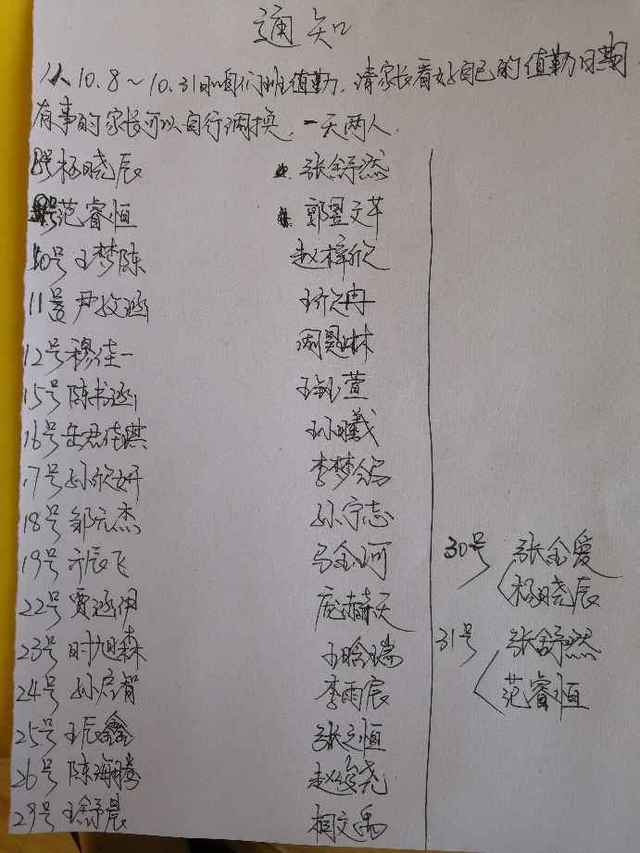 通知
从10.8~10.31日咱们班值勤，请家长看好自己的值勤日期
有事的家长可以自行调换，一天两人。
8号杨晓辰 张舒然
9号范睿恒 郭昱文芊
10号王梦陈 赵梓欣
11号尹梓涵 王欣冉
12号穆佳一
15号陈书涵 萱
16号岳君佳琪 孙曦
17号孙欣妍 李梦
18号邹元杰 孙宁志
19号亓辰飞 马金珂
22号贾涵伊 庞赫天
23号时旭森 王晗瑞
24号孙启智 李雨辰
25号王辰鑫 张立恒
26号陈海腾 赵俊尧
29号王舒晨 相文禹
30号 张金爱
杨晓辰
31号 张舒然
范睿恒